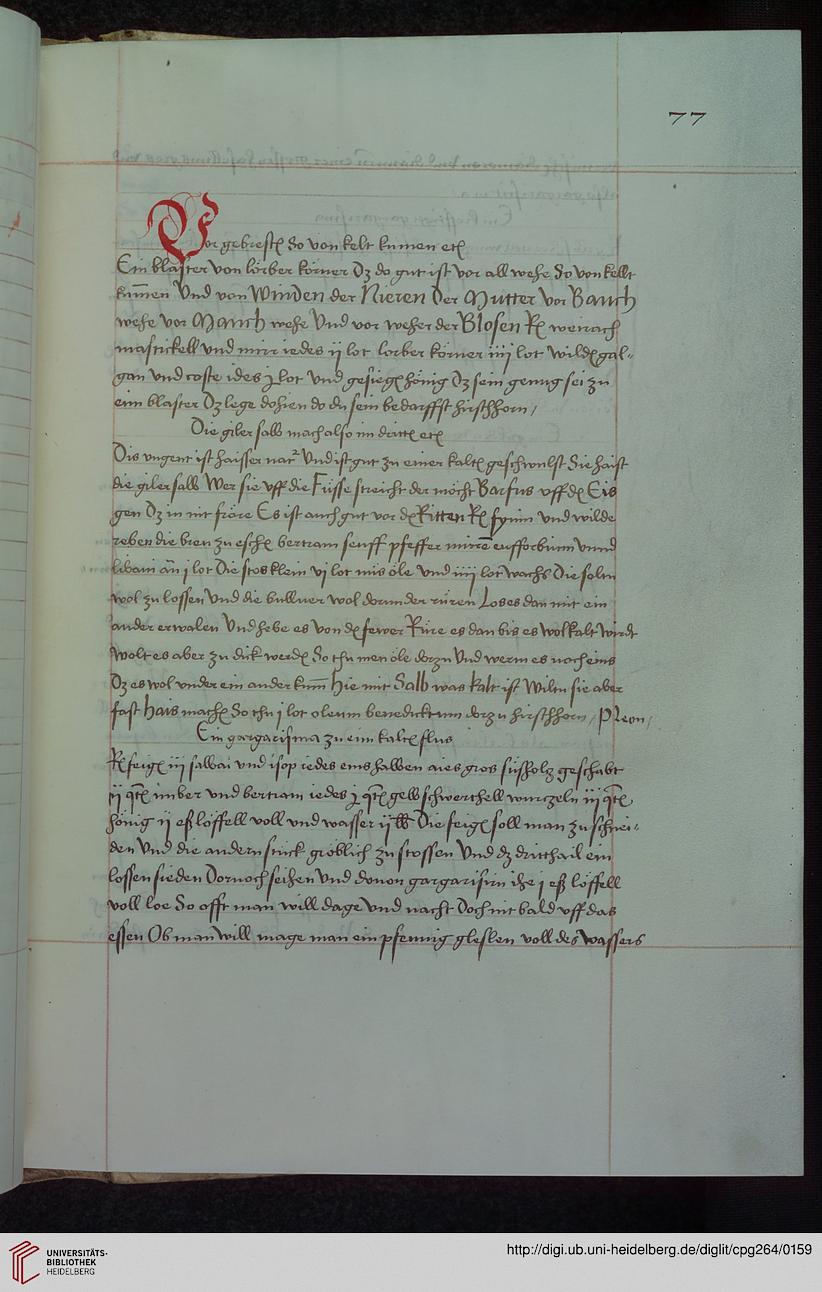 77
Vor gebrestñ So von kelt kumen etc
Ein blaster von lörber körner Dz do gut ist vor all wehe do von kellt
kum̄en Und von Winden der Nieren Der Mutter vor Bauch
wehe vor Mauch wehe Und vor weher der Blosen Rx weirach
mastickell und mirr iedes ij lot lorber körner iiij lot wildn̄ gal-
gan und coste ides j lot Und hönig Dz sein genug sei zu
eim blaster Dz lege dohien do du sein bedarffst hirschhorn /
Die giler salb mach also im drittn̄ etc
Dis ungent ist haisser nat Und ist gut zu einer kaltn̄ geschwulst Sie haist
die giler salb Wer sie uff die Füsse streicht der möcht Barfus uff dn̄ Eis
gen Dz in nit fröre Es ist auch gut vor dn̄ Ritten Rx und wilde
reben die bren zu eschn̄ bertram senff pfeffer mirrē eufforbium unnd
an̄ j lot Die stos klein vj lot nus öle und iiij lot wachs Die soltu
wol zu lossen Und die bulluer wol dorunder rüren Loses dan mit ein
ander erwalen Und hebe es von dn̄ fewer Rüre es dan bis es wol kalt wirdt
Wolt es aber zu dick werdn̄ So thu men öle dorzu Und werm es noch eins
Dz es wol under ein ander kum̄ Hie mit Salb was kalt ist Wiltu sie aber
fast hais machn̄ So thu j lot oleum benedicktum dorzu hirschhorn /
Ein gargarisma zu eim kaltn̄ flus
Rx feign̄ iij salbai und isop iedes eins halben aies gros süsholz geschabt
ij qtn̄ imber und bertram iedes j qtn̄ gelb schwerthell wurczeln iij qtn̄
hönig ij eß löffell voll und wasser ij lb Die feign̄ soll man zu schnei-
den Und die andern stück gröblich zu stossen Und dz dritthail ein
lossen sieden Dornoch seihen Und dovon gargarisirn ihe j eß löffell
voll loe So offt man will dage Und nacht Doch nit bald uff das
essen Ob man will mage man ein pfennig gleslen voll des wassers
UNIVERSITÄTS-
BIBLIOTHEK
HEIDELBERG
http://digi.ub.uni-heidelberg.de/diglit/cpg264/0159